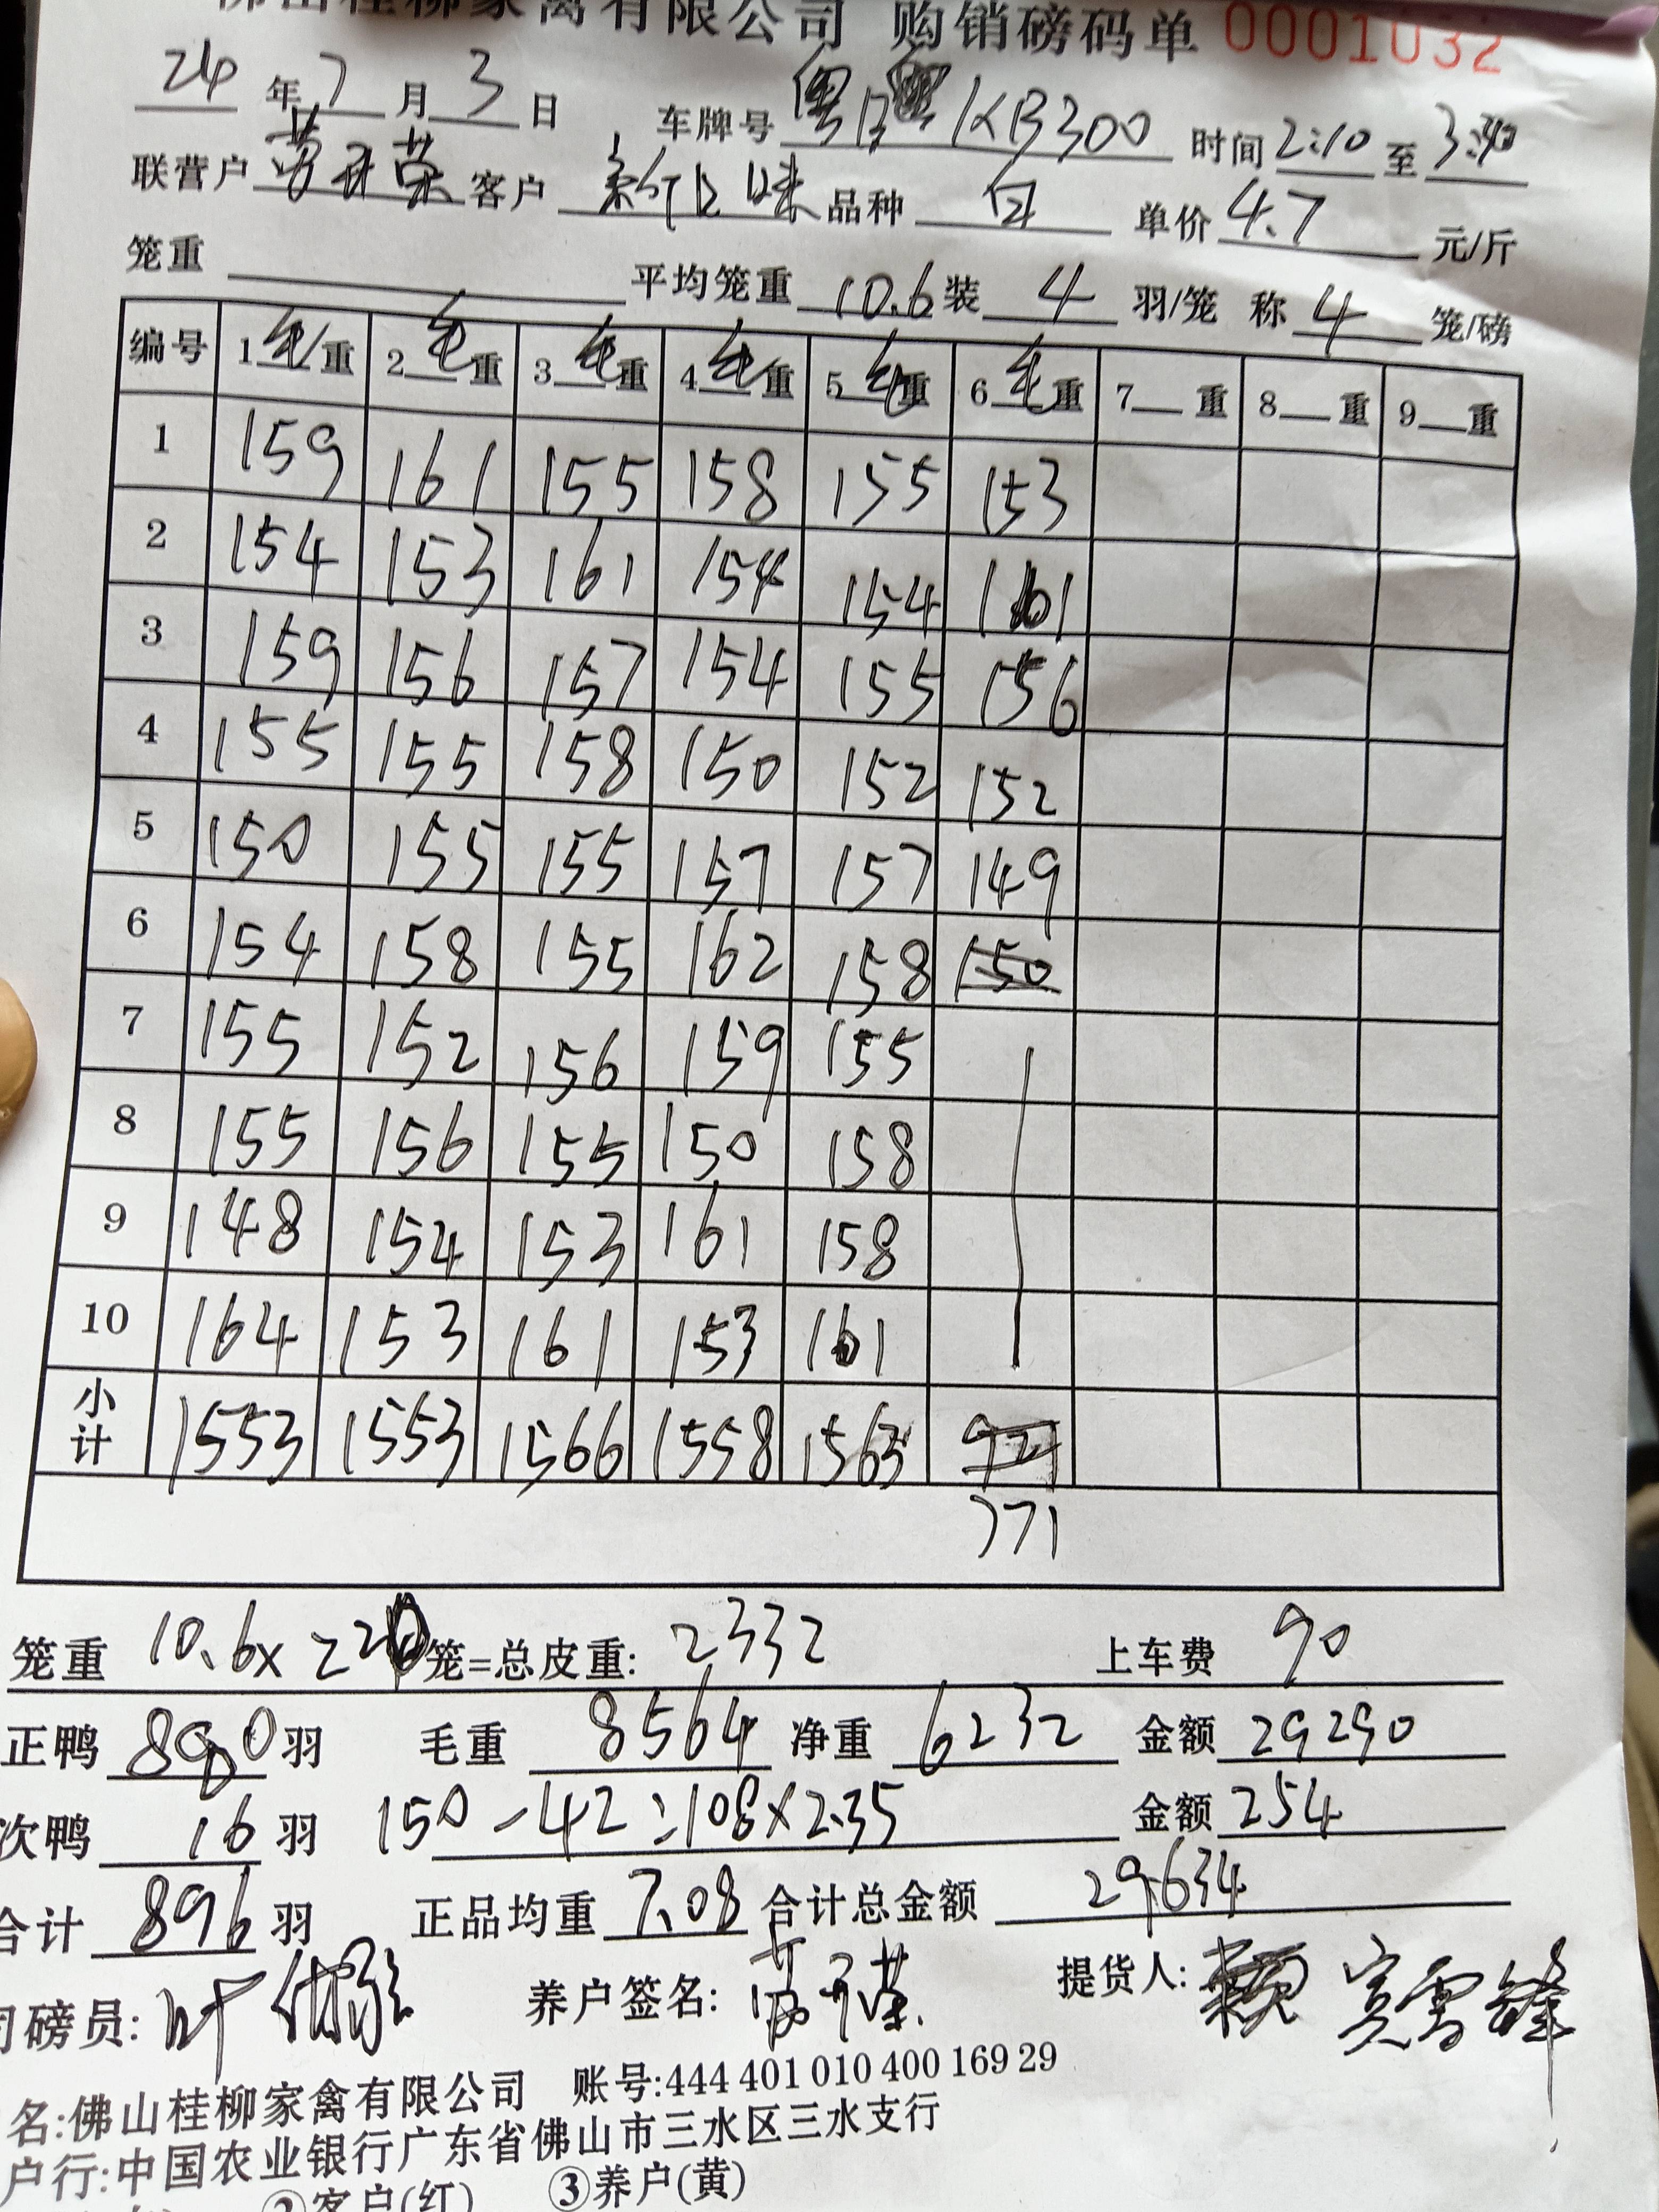 佛山桂柳家禽有限公司 购销磅码单 0001032
24 年 7 月 3 日 车牌号 KB300 时间 2:10 至 3:40
联营户 客户 新口味 品种 白 单价 4.7 元/斤
笼重 平均笼重 10.6 装 4 羽/笼 称 4 笼/磅
编号 1毛重 2毛重 3毛重 4毛重 5毛重 6毛重 7 重 8 重 9 重
1 159 161 155 158 155 153
2 154 153 161 154 154 161
3 159 156 157 154 155 156
4 155 155 158 150 152 152
5 150 155 155 157 157 149
6 154 158 155 162 158 150
7 155 152 156 159 155
8 155 156 155 150 158
9 148 154 153 161 158
10 164 153 161 153 161
小计 1553 1553 1566 1558 1563
771
笼重 10.6x 220 笼=总皮重: 2332 上车费 90
正鸭 880 羽 毛重 8564 净重 6232 金额 29290
次鸭 16 羽 150-42=108×2.35 金额 254
合计 896 羽 正品均重 7.08 合计总金额 29634
司磅员: 叶 养户签名: 提货人:
名:佛山桂柳家禽有限公司 账号:444 401 010 400 169 29
户行:中国农业银行广东省佛山市三水区三水支行
②客户(红) ③养户(黄)